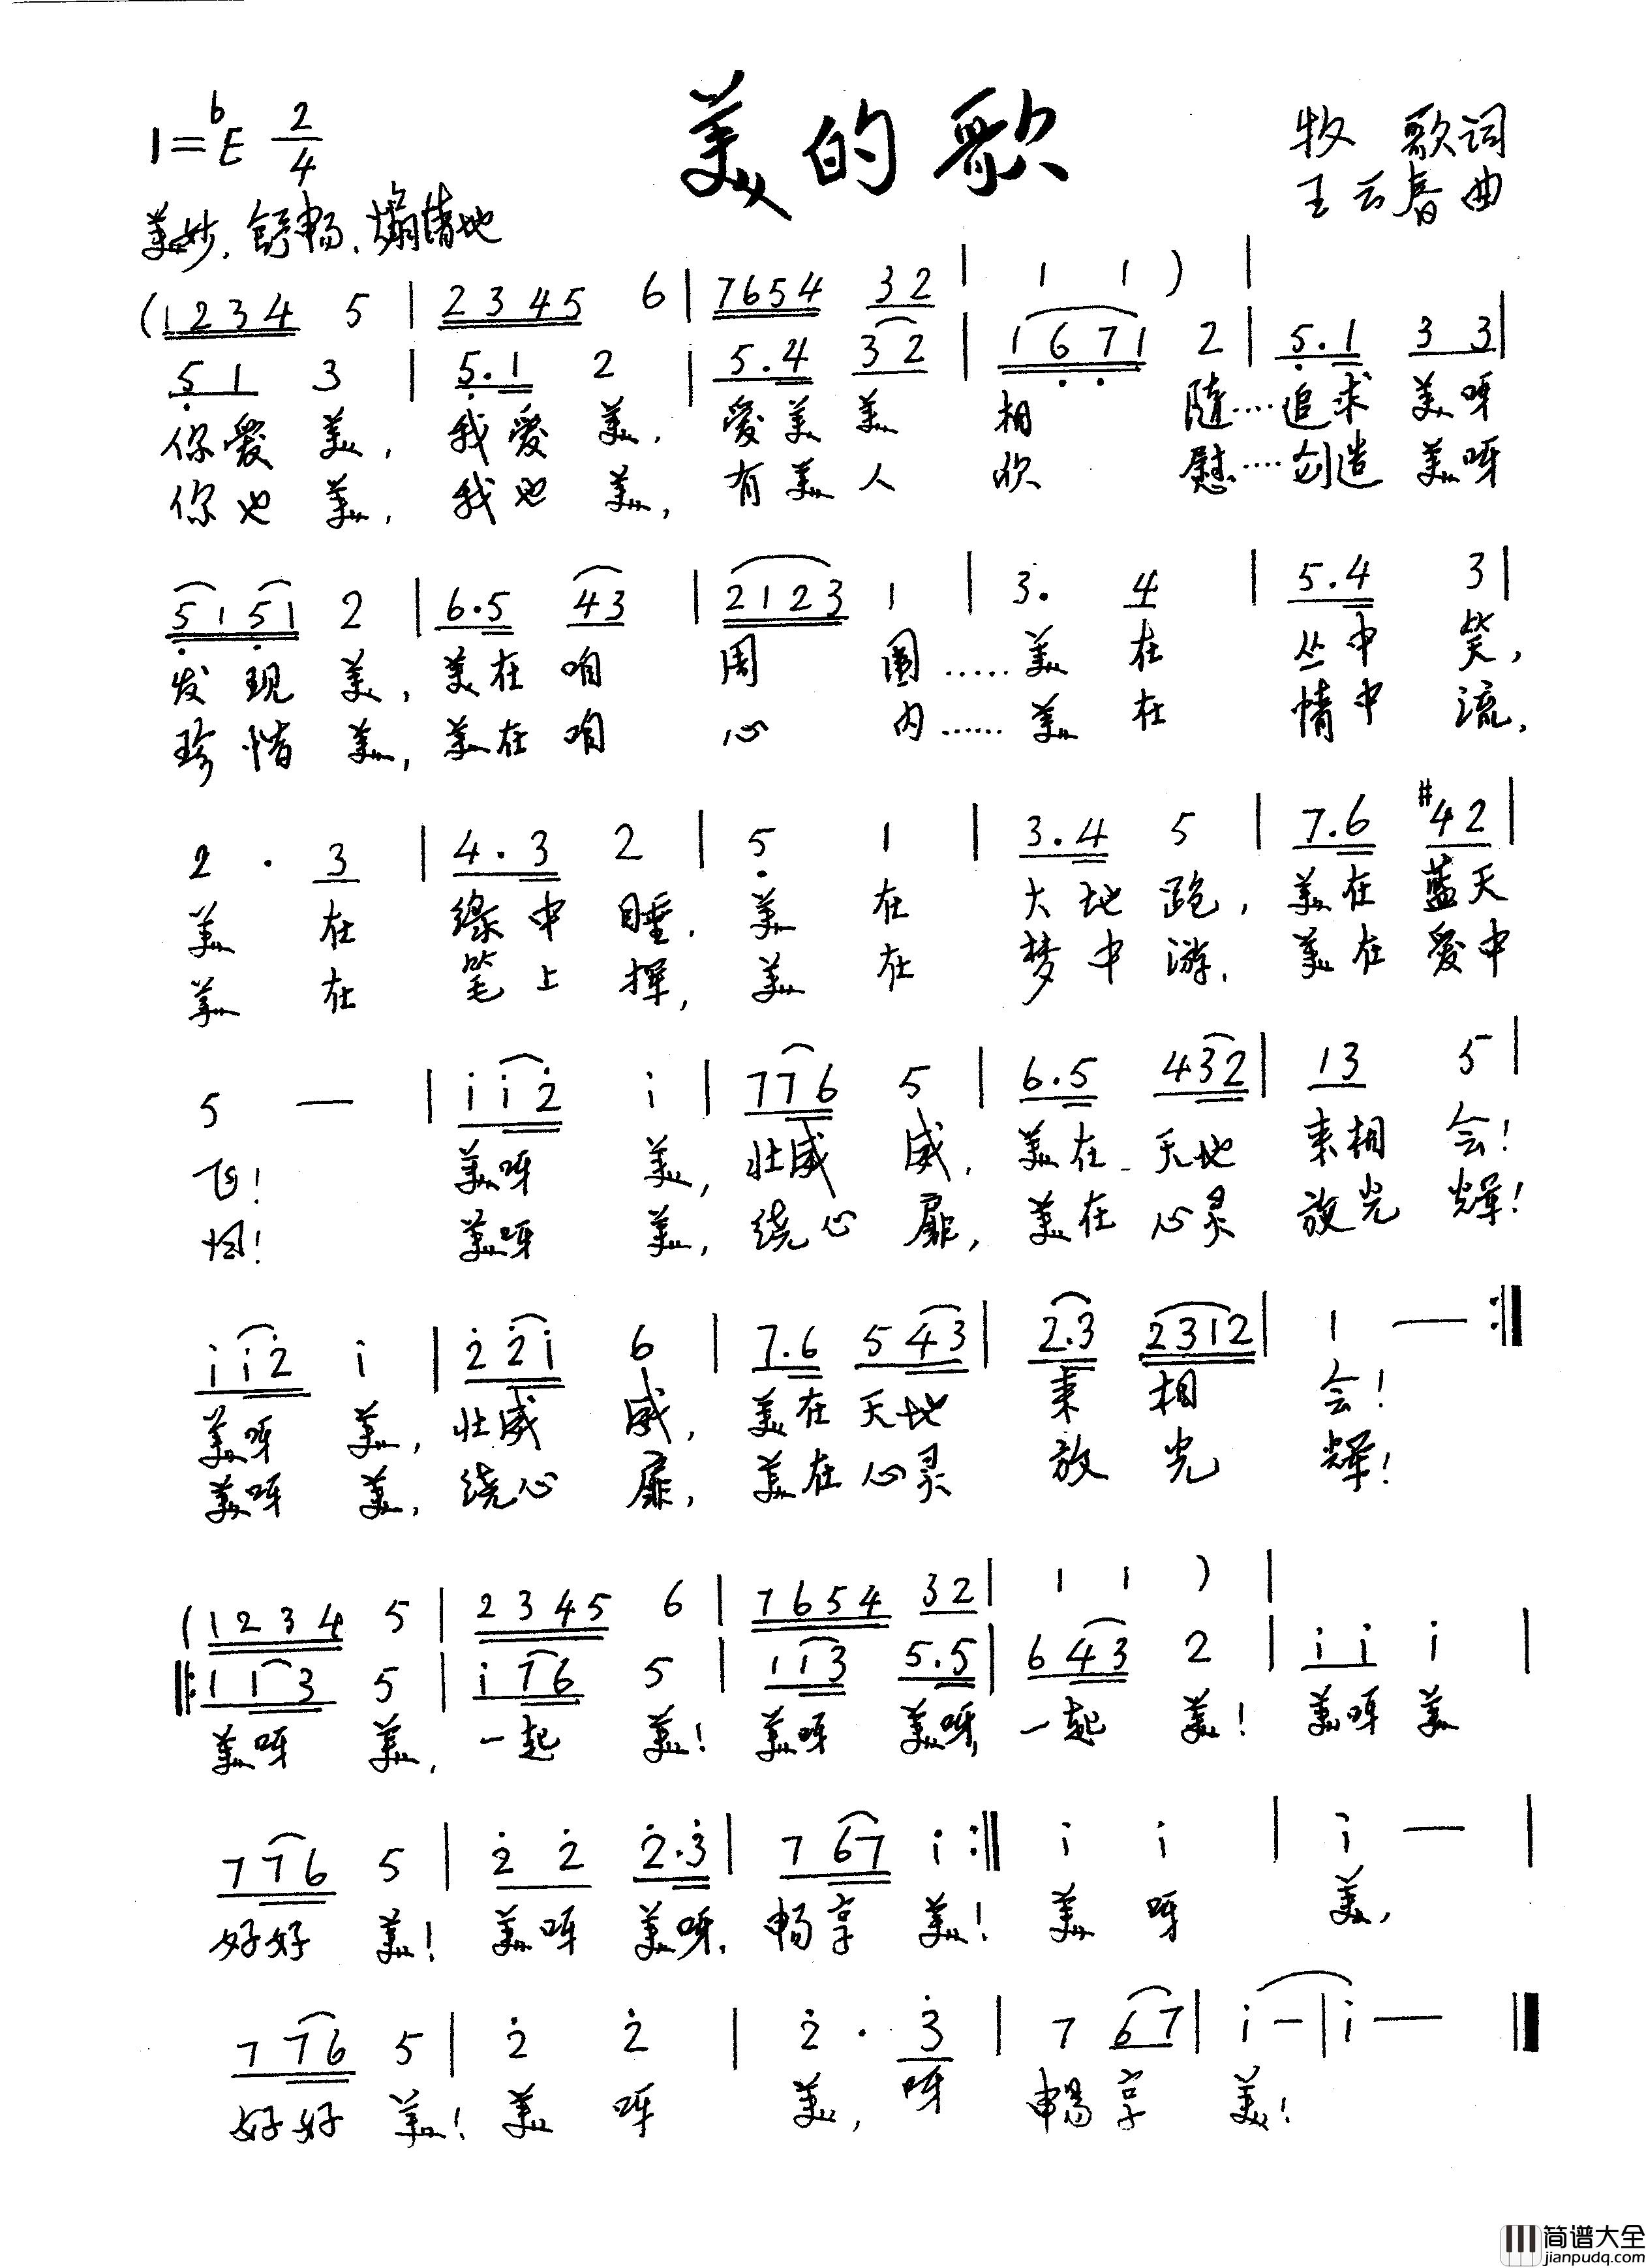 美的歌
1=bE 2/4
牧 歌词
王云春曲
美妙、舒畅、煽情地
(1234 5 | 2345 6 | 7654 32 | 1 1 ) |
51 3 | 5.1 2 | 5.4 32 | 1671 2 | 5.1 33 |
你爱美,我爱美,爱美美相随……追求美呀
你也美,我也美,有美人欣慰……创造美呀
5151 2 | 6.5 43 | 2123 1 | 3. 4 | 5.4 3 |
发现美,美在咱周围……美在丛中笑,
珍惜美,美在咱心内……美在情中流,
2 . 3 | 4.3 2 | 5 1 | 3.4 5 | 7.6 #42 |
美在绿中睡,美在大地跑,美在蓝天
美在笔上挥,美在梦中游,美在爱中
5 — | i i 2 i | 7 7 6 5 | 6.5 432 | 13 5 |
飞!美呀美,壮威威,美在天地来相会!
美呀美,绕心扉,美在心灵放光辉!
i i 2 i | 2 2 i 6 | 7.6 5 43 | 2.3 2312 | 1 — :‖
美呀美,壮威威,美在天地来相会!
美呀美,绕心扉,美在心灵放光辉!
(1234 5 | 2345 6 | 7654 32 | 1 1 ) |
‖: 1 1 3 5 | i 7 6 5 | 1 1 3 5.5 | 6 43 2 | i i i |
美呀美,一起美!美呀美呀,一起美!美呀美
7 7 6 5 | 2 2 2.3 | 7 67 i :‖ i i | i — |
好好美!美呀美呀,畅享美!美呀美,
7 7 6 5 | 2 2 | 2 . 3 | 7 67 | i — | i — ‖
好好美!美呀美,呀畅享美!
简谱大全
jianpudq.com